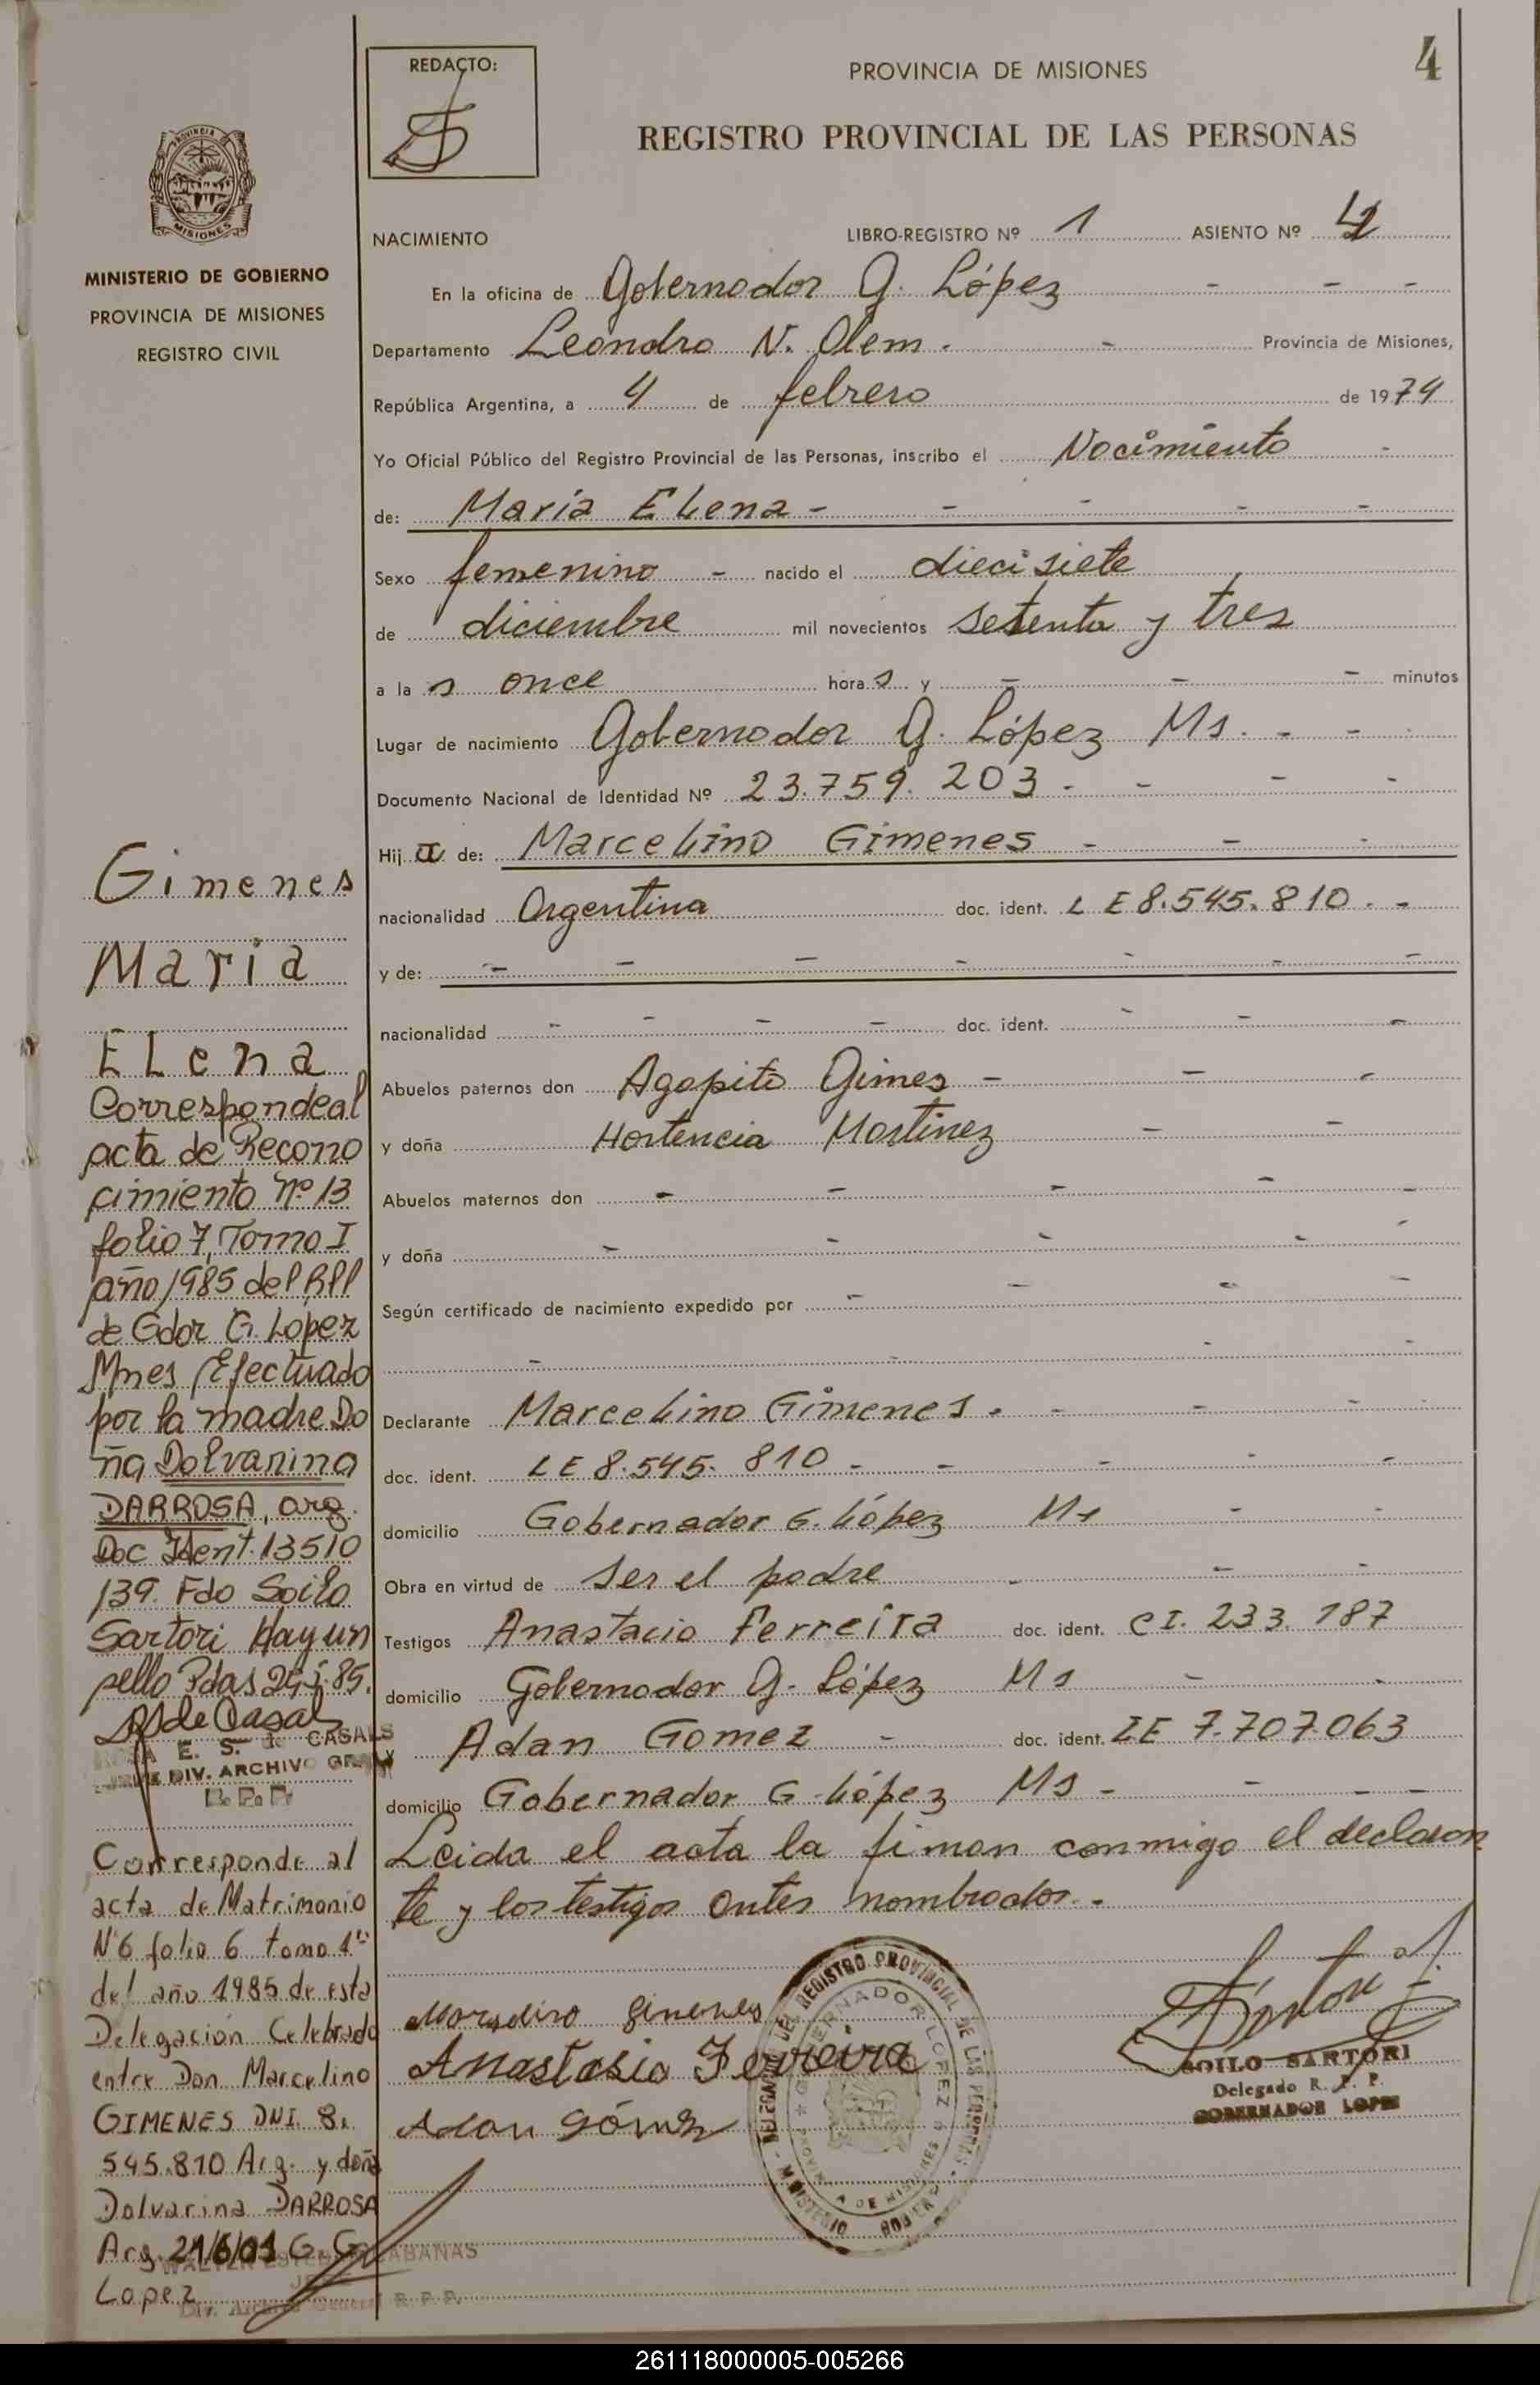 REDACTO:
PROVINCIA DE MISIONES
4
REGISTRO PROVINCIAL DE LAS PERSONAS
PROVINCIA
MISIONES
MINISTERIO DE GOBIERNO
PROVINCIA DE MISIONES
REGISTRO CIVIL
NACIMIENTO LIBRO-REGISTRO Nº 1 ASIENTO Nº 4
En la oficina de Gobernador G. López - - -
Departamento Leandro N. Alem. - Provincia de Misiones,
República Argentina, a 4 de febrero de 1974
Yo Oficial Público del Registro Provincial de las Personas, inscribo el Nacimiento -
de: María Elena - - - - -
Sexo femenino - nacido el diecisiete
de diciembre mil novecientos setenta y tres
a la s once hora s y - - - minutos
Lugar de nacimiento Gobernador G. López Ms. - -
Documento Nacional de Identidad Nº 23.759.203 - - - -
Hij a de: Marcelino Gimenes - - -
nacionalidad Argentina doc. ident. L E 8.545.810. -
y de: - - - - - - -
nacionalidad - - - - doc. ident. - - -
Abuelos paternos don Agapito Gimes - - -
y doña Hortencia Martinez - -
Abuelos maternos don - - - - -
y doña - - - - -
Según certificado de nacimiento expedido por - - - -
- - - -
Declarante Marcelino Gimenes. - - - -
doc. ident. L E 8.545.810 - - - - -
domicilio Gobernador G. López Ms - -
Obra en virtud de ser el padre - - -
Testigos Anastacio Ferreira doc. ident. C I. 233.187
domicilio Gobernador G. López Ms - -
Adan Gomez - doc. ident. LE 7.707.063
domicilio Gobernador G. López Ms - - - -
Leida el acta la firman conmigo el declaran
te y los testigos antes nombrados. -
Marcelino Gimenes
Anastasio Ferreira
Adan Gómez
DELEGACION DEL REGISTRO PROVINCIAL DE LAS PERSONAS
MINISTERIO
GOBERNADOR LOPEZ
PROVINCIA DE MISIONES
SOILO SARTORI
Delegado R. P. P.
GOBERNADOR LOPEZ
Gimenes
Maria
Elena
Corresponde al
acta de Recono
cimiento Nº 13
folio 7, Tomo I
año 1985 del RPP
de Gdor G. Lopez
Mnes Efectuado
por la madre Do
ña Dolvarina
DARROSA, arg.
Doc Ident. 13510
139. Fdo Soilo
Sartori Hay un
sello Pdas
RSde Casal
E. S. de CASALS
JEFE DIV. ARCHIVO GRAL
R. P. P.
Corresponde al
acta de Matrimonio
Nº6 folio 6 tomo 1º
del año 1985 de esta
Delegación Celebrado
entre Don Marcelino
GIMENES DNI 8.
545.810 Arg. y doña
Dolvarina DARROSA
Arg 21/6/01 G. G.
Lopez
WALTER ESTEBAN CABANAS
JEFE
Div. Archivo General R. P. P.
261118000005-005266